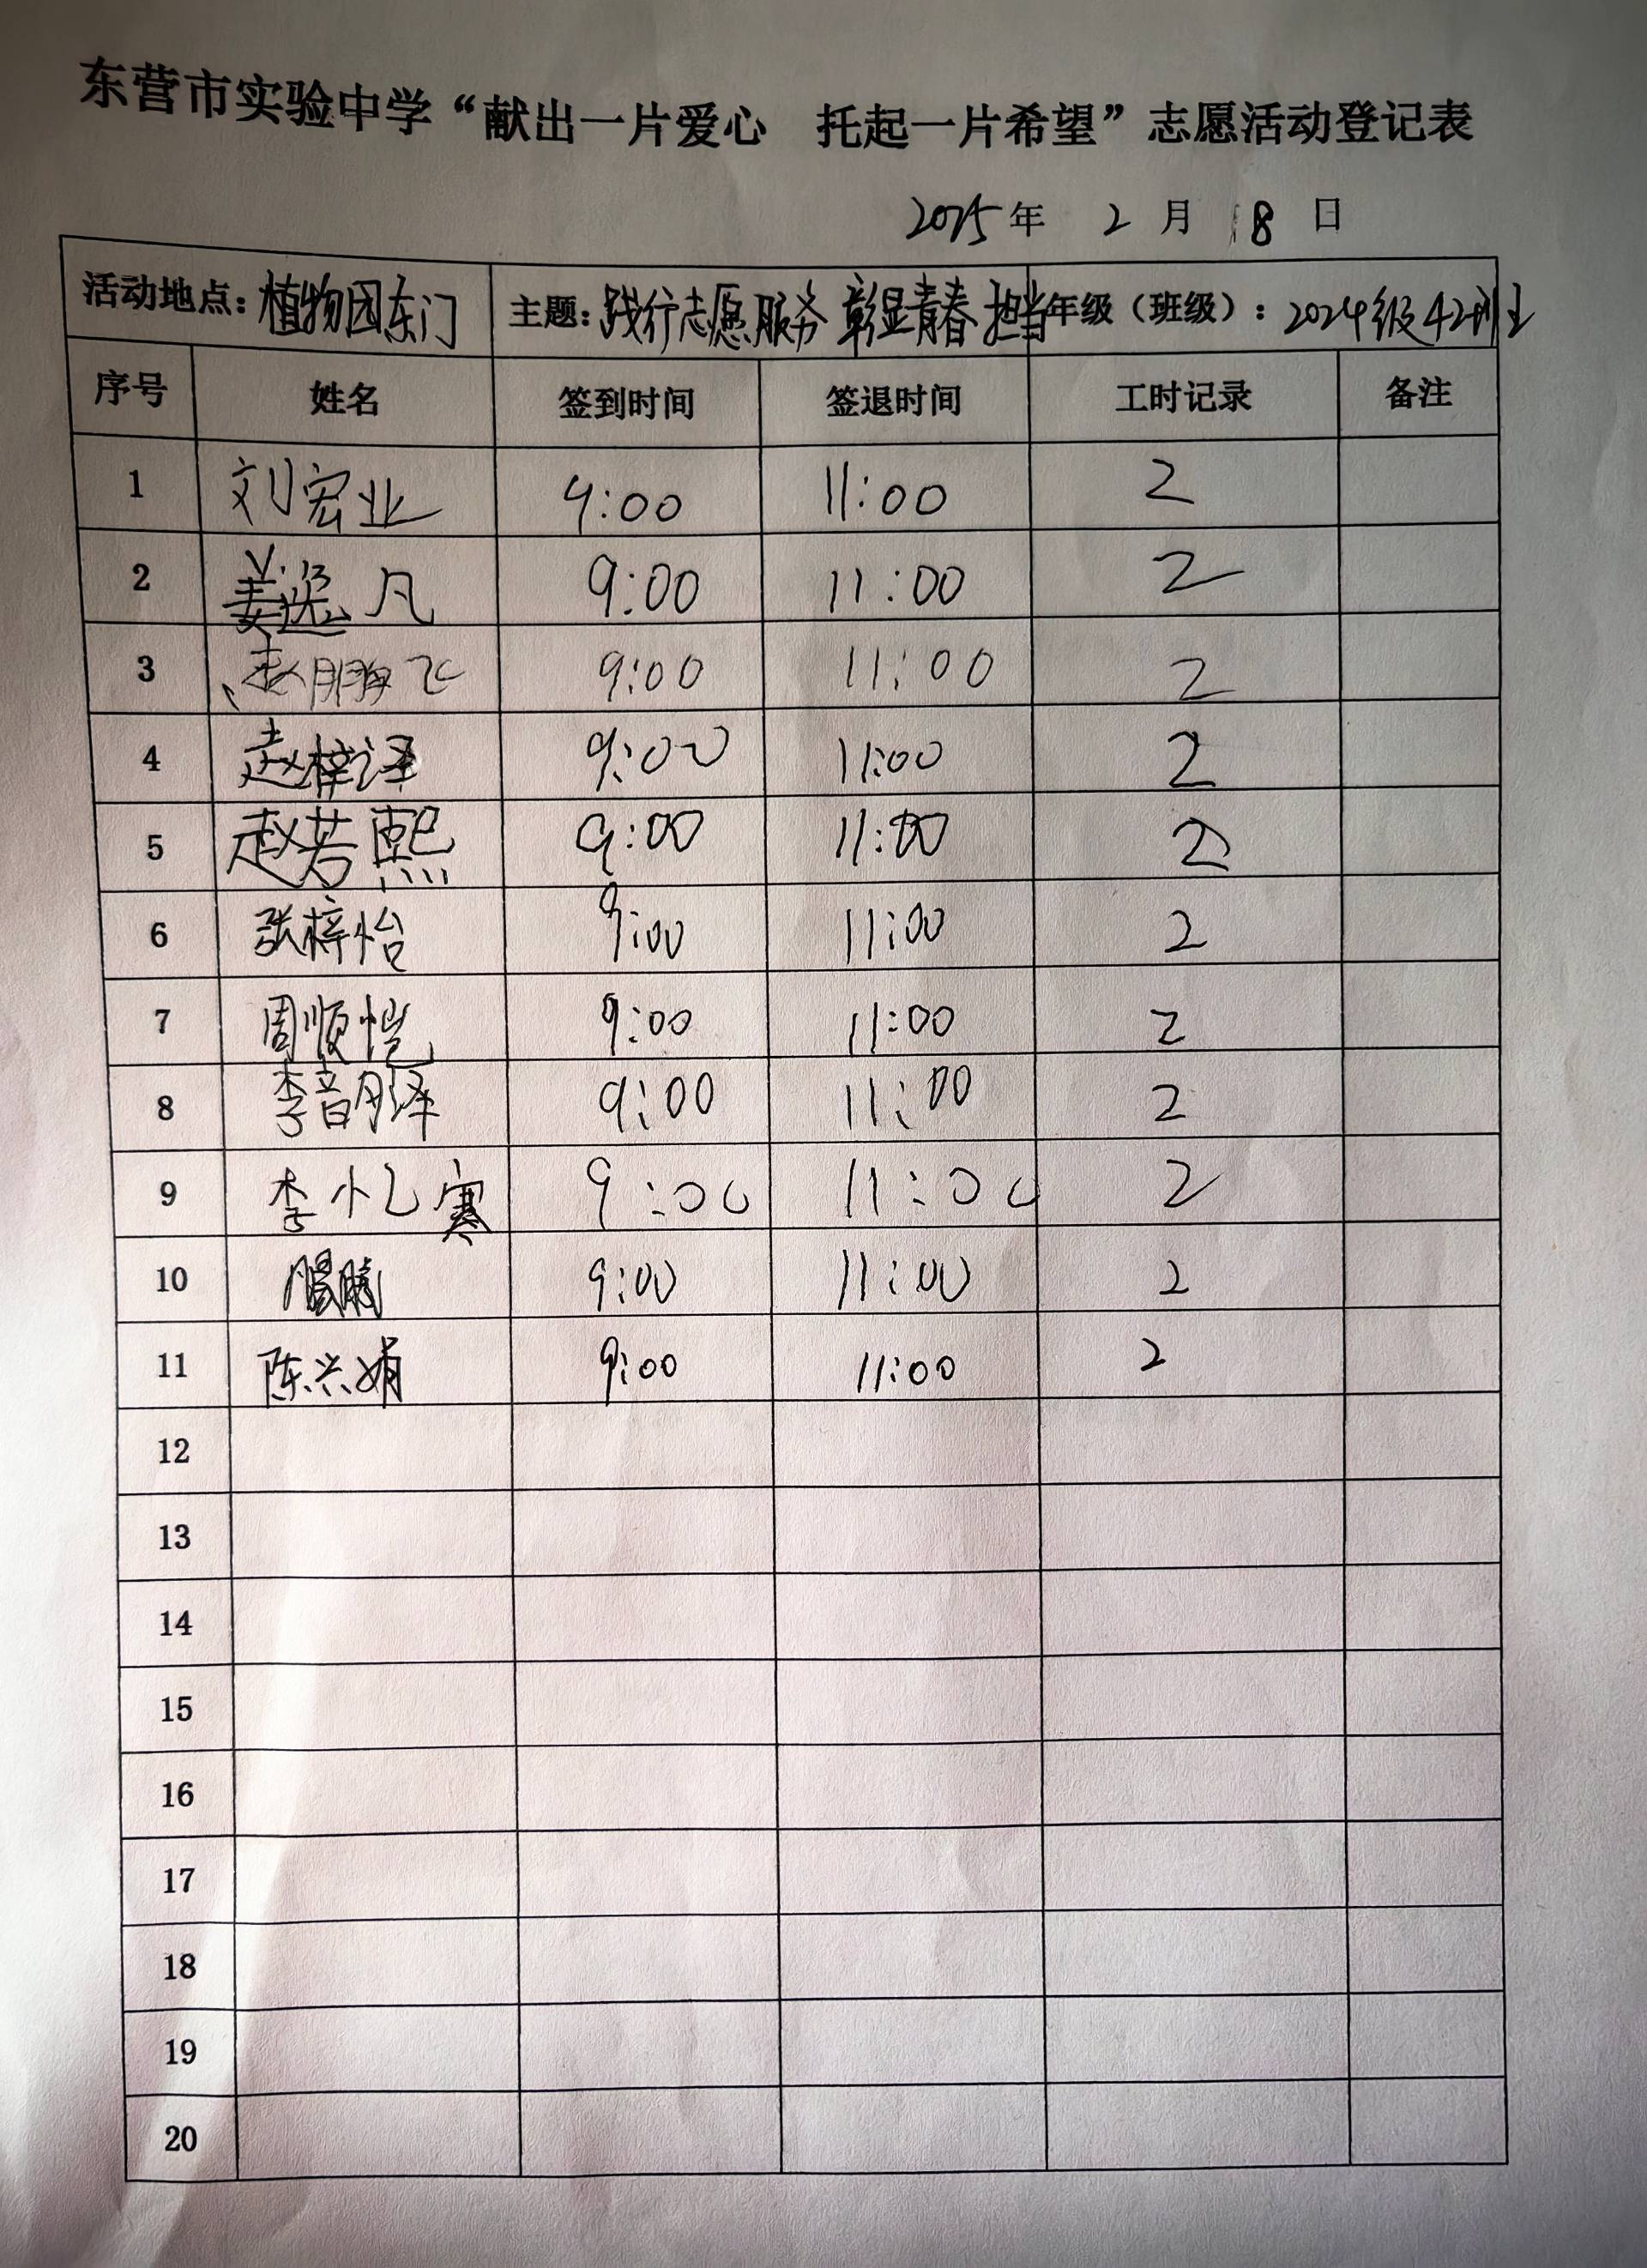 东营市实验中学“献出一片爱心 托起一片希望”志愿活动登记表
2025年 2 月 18 日
活动地点：植物园东门 主题：践行志愿服务 彰显青春担当 年级（班级）：2024级42班
序号 姓名 签到时间 签退时间 工时记录 备注
1 刘宏业 9:00 11:00 2
2 姜逸凡 9:00 11:00 2
3 赵鹏飞 9:00 11:00 2
4 赵梓译 9:00 11:00 2
5 赵若熙 9:00 11:00 2
6 张梓怡 9:00 11:00 2
7 周顺恺 9:00 11:00 2
8 李 泽 9:00 11:00 2
9 李忆寒 9:00 11:00 2
10 9:00 11:00 2
11 陈兴娟 9:00 11:00 2
12
13
14
15
16
17
18
19
20